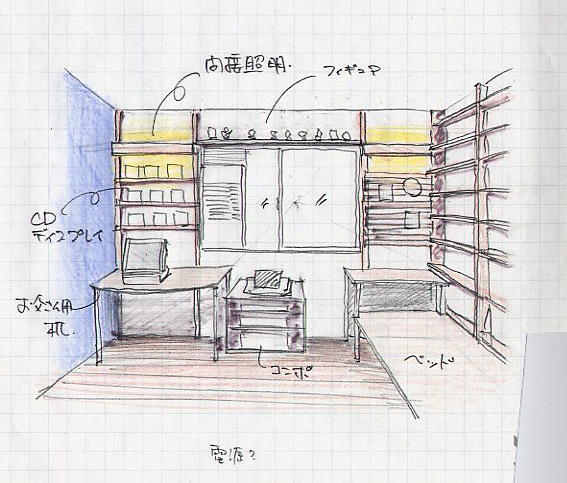 間接照明.
フィギュア
CD
ディスプレイ
お父さん用
机.
コンポ
ベッド
電源?